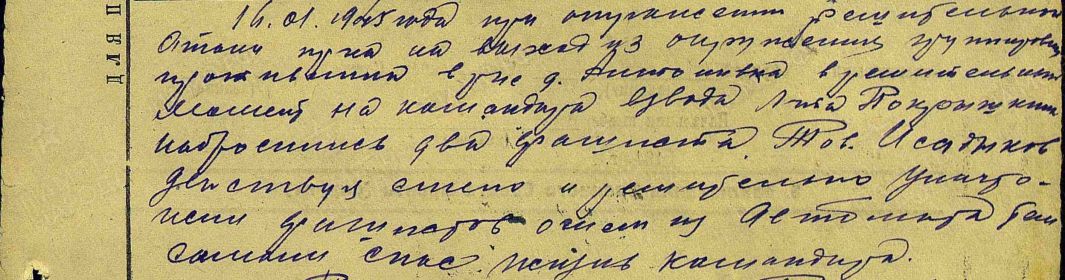 16.01.1945 года при отражении решительной
Атаки врага на выход из окружения группировки
противника в р-не д. Антонивка в решительный
момент на командира взвода л-та Покрышкина
набросились два фашиста. Тов. Исадыков
действуя смело и решительно уничто-
жил фашистов огнем из Автомата тем
самым спас жизнь командира.
ДЛЯ П